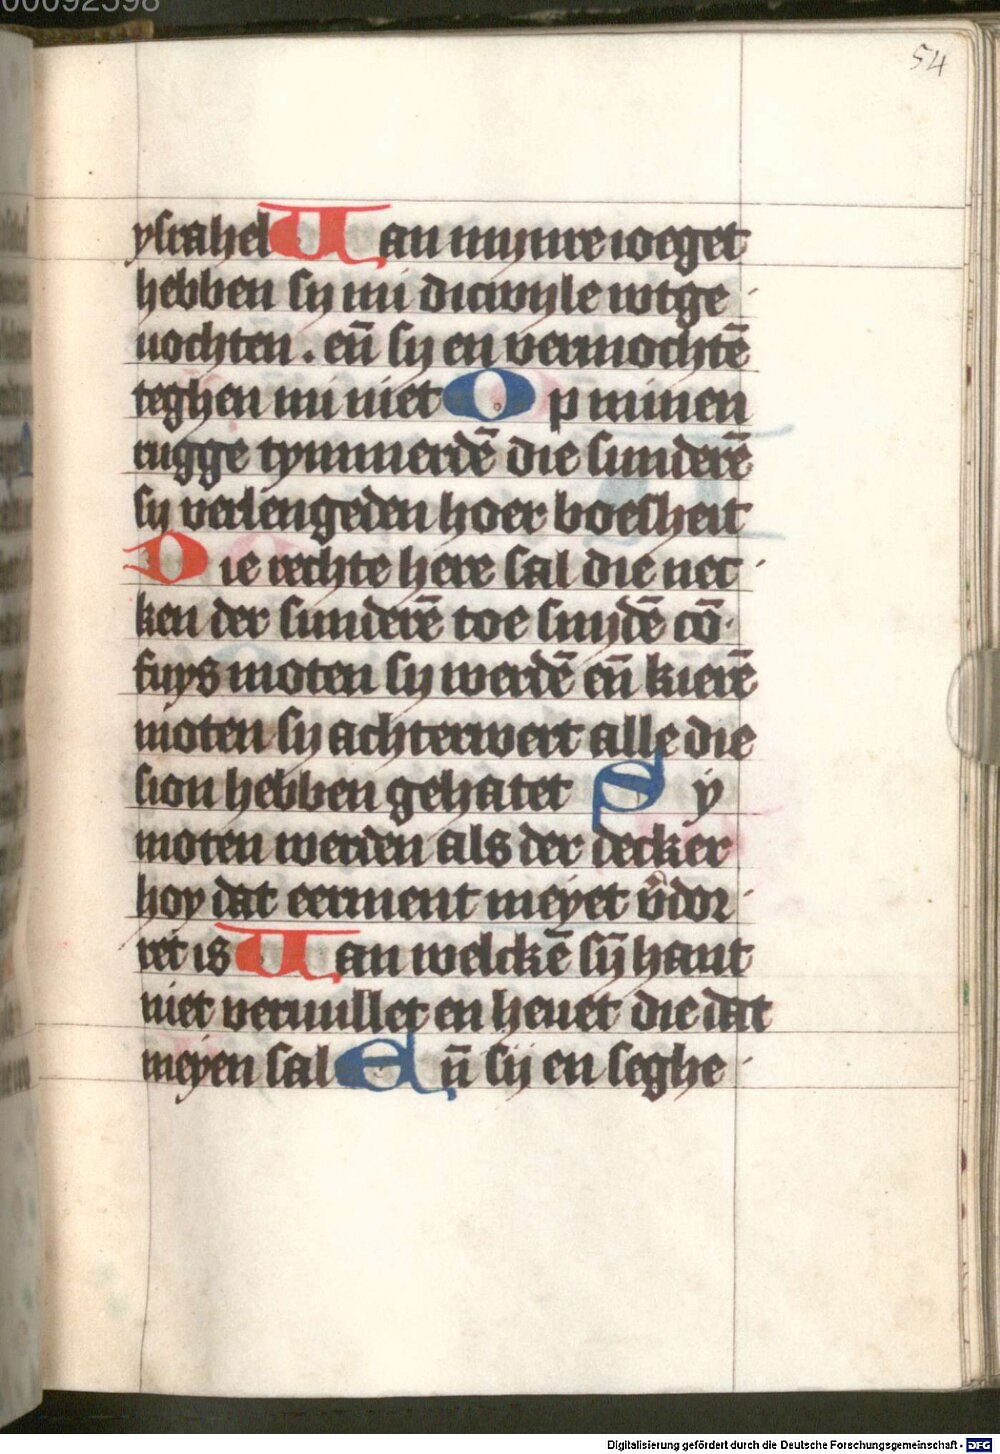 00092598
54
ysrahel Uan mijnre ioeget
hebben sij mi dicwyle wtge
uochten . eñ sij en vermochtē
teghen mi niet Op minen
rugge tymmerdē die sunderē
sij verlengeden hoer boesheit
Die rechte here sal die nec
ken der sunderē toe snydē cō
fuys moten sij werdē eñ kierē
moten sij achterwert alle die
sion hebben gehatet Sy
moten werden als der decker
hoy dat eerment meyet v̄dor
ret is Uan welckē sȳ hant
niet veruullet en heuet die dat
meyen sal Eñ sij en seghe
Digitalisierung gefördert durch die Deutsche Forschungsgemeinschaft - DFG